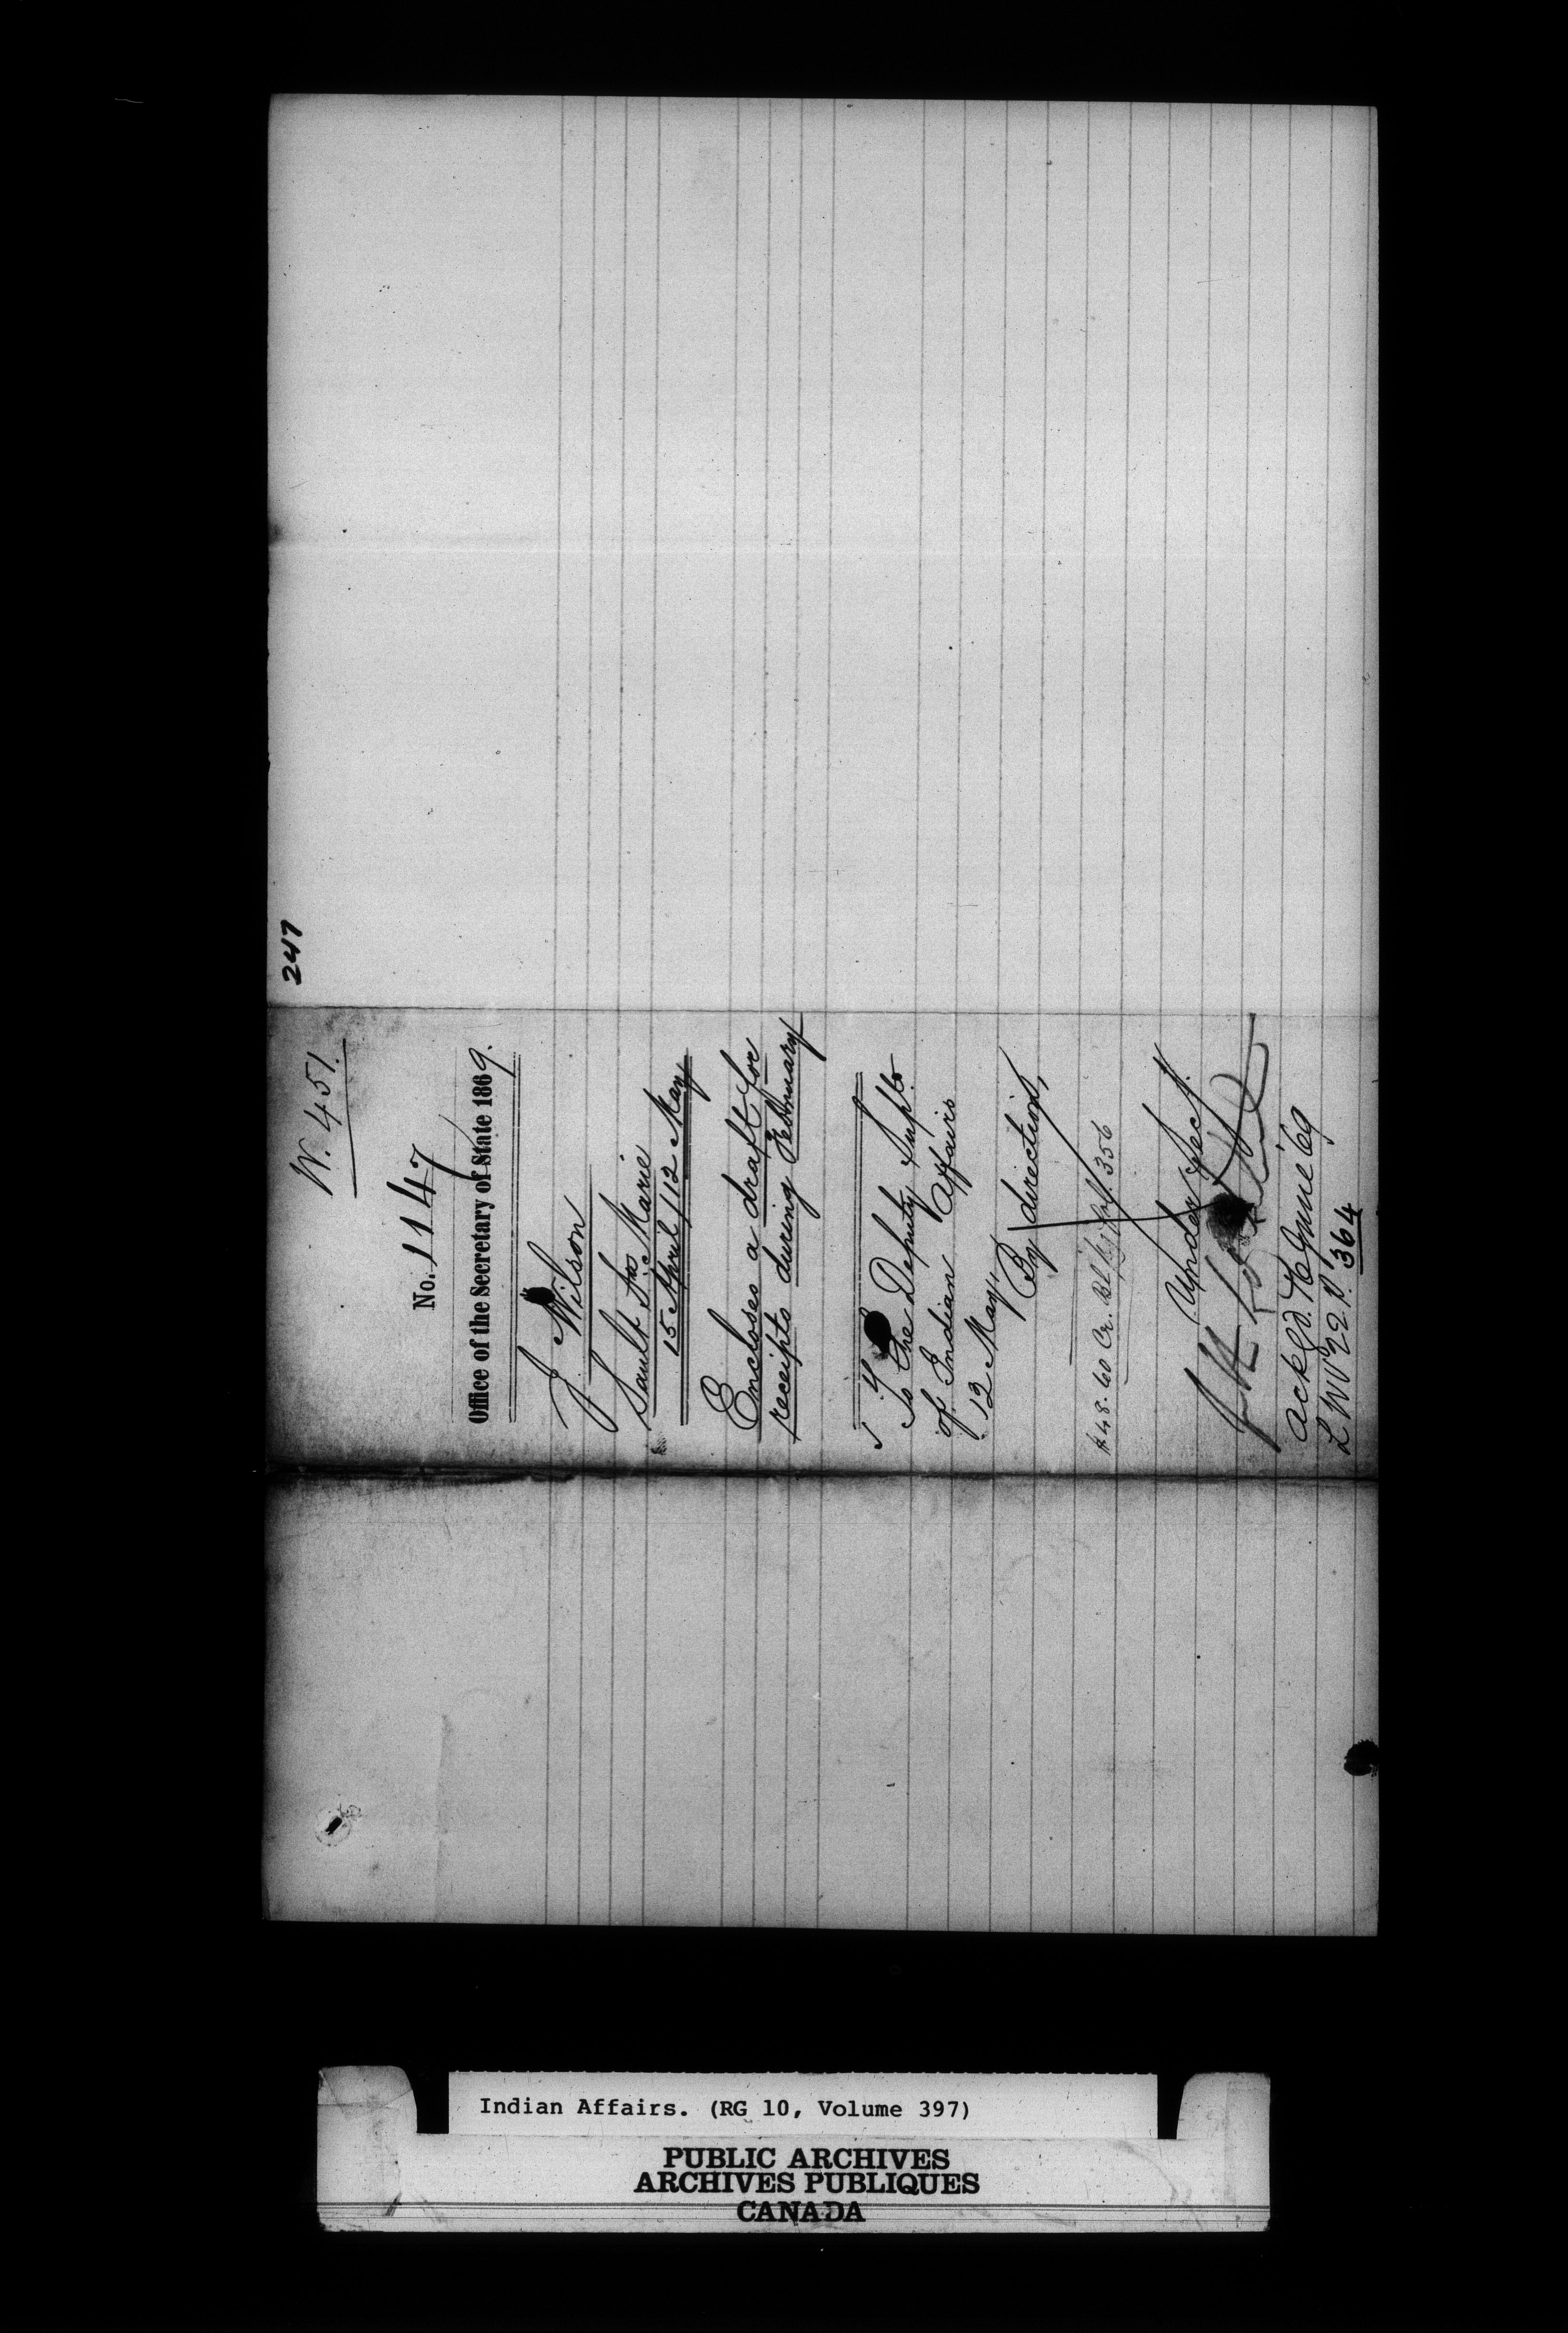 247
W. 451.
No. 1147
Office of the Secretary of State 1869.
J Wilson
Sault Ste Marie
15 April / 12 May
Encloses a draft for
receipts during February
To the Deputy Supt.
of Indian Affairs
12 May
By direction,
$48.60 Cr. 356
Under Sec.
ackgd. 7 June '69
364
Indian Affairs. (RG 10, Volume 397)
PUBLIC ARCHIVES
ARCHIVES PUBLIQUES
CANADA